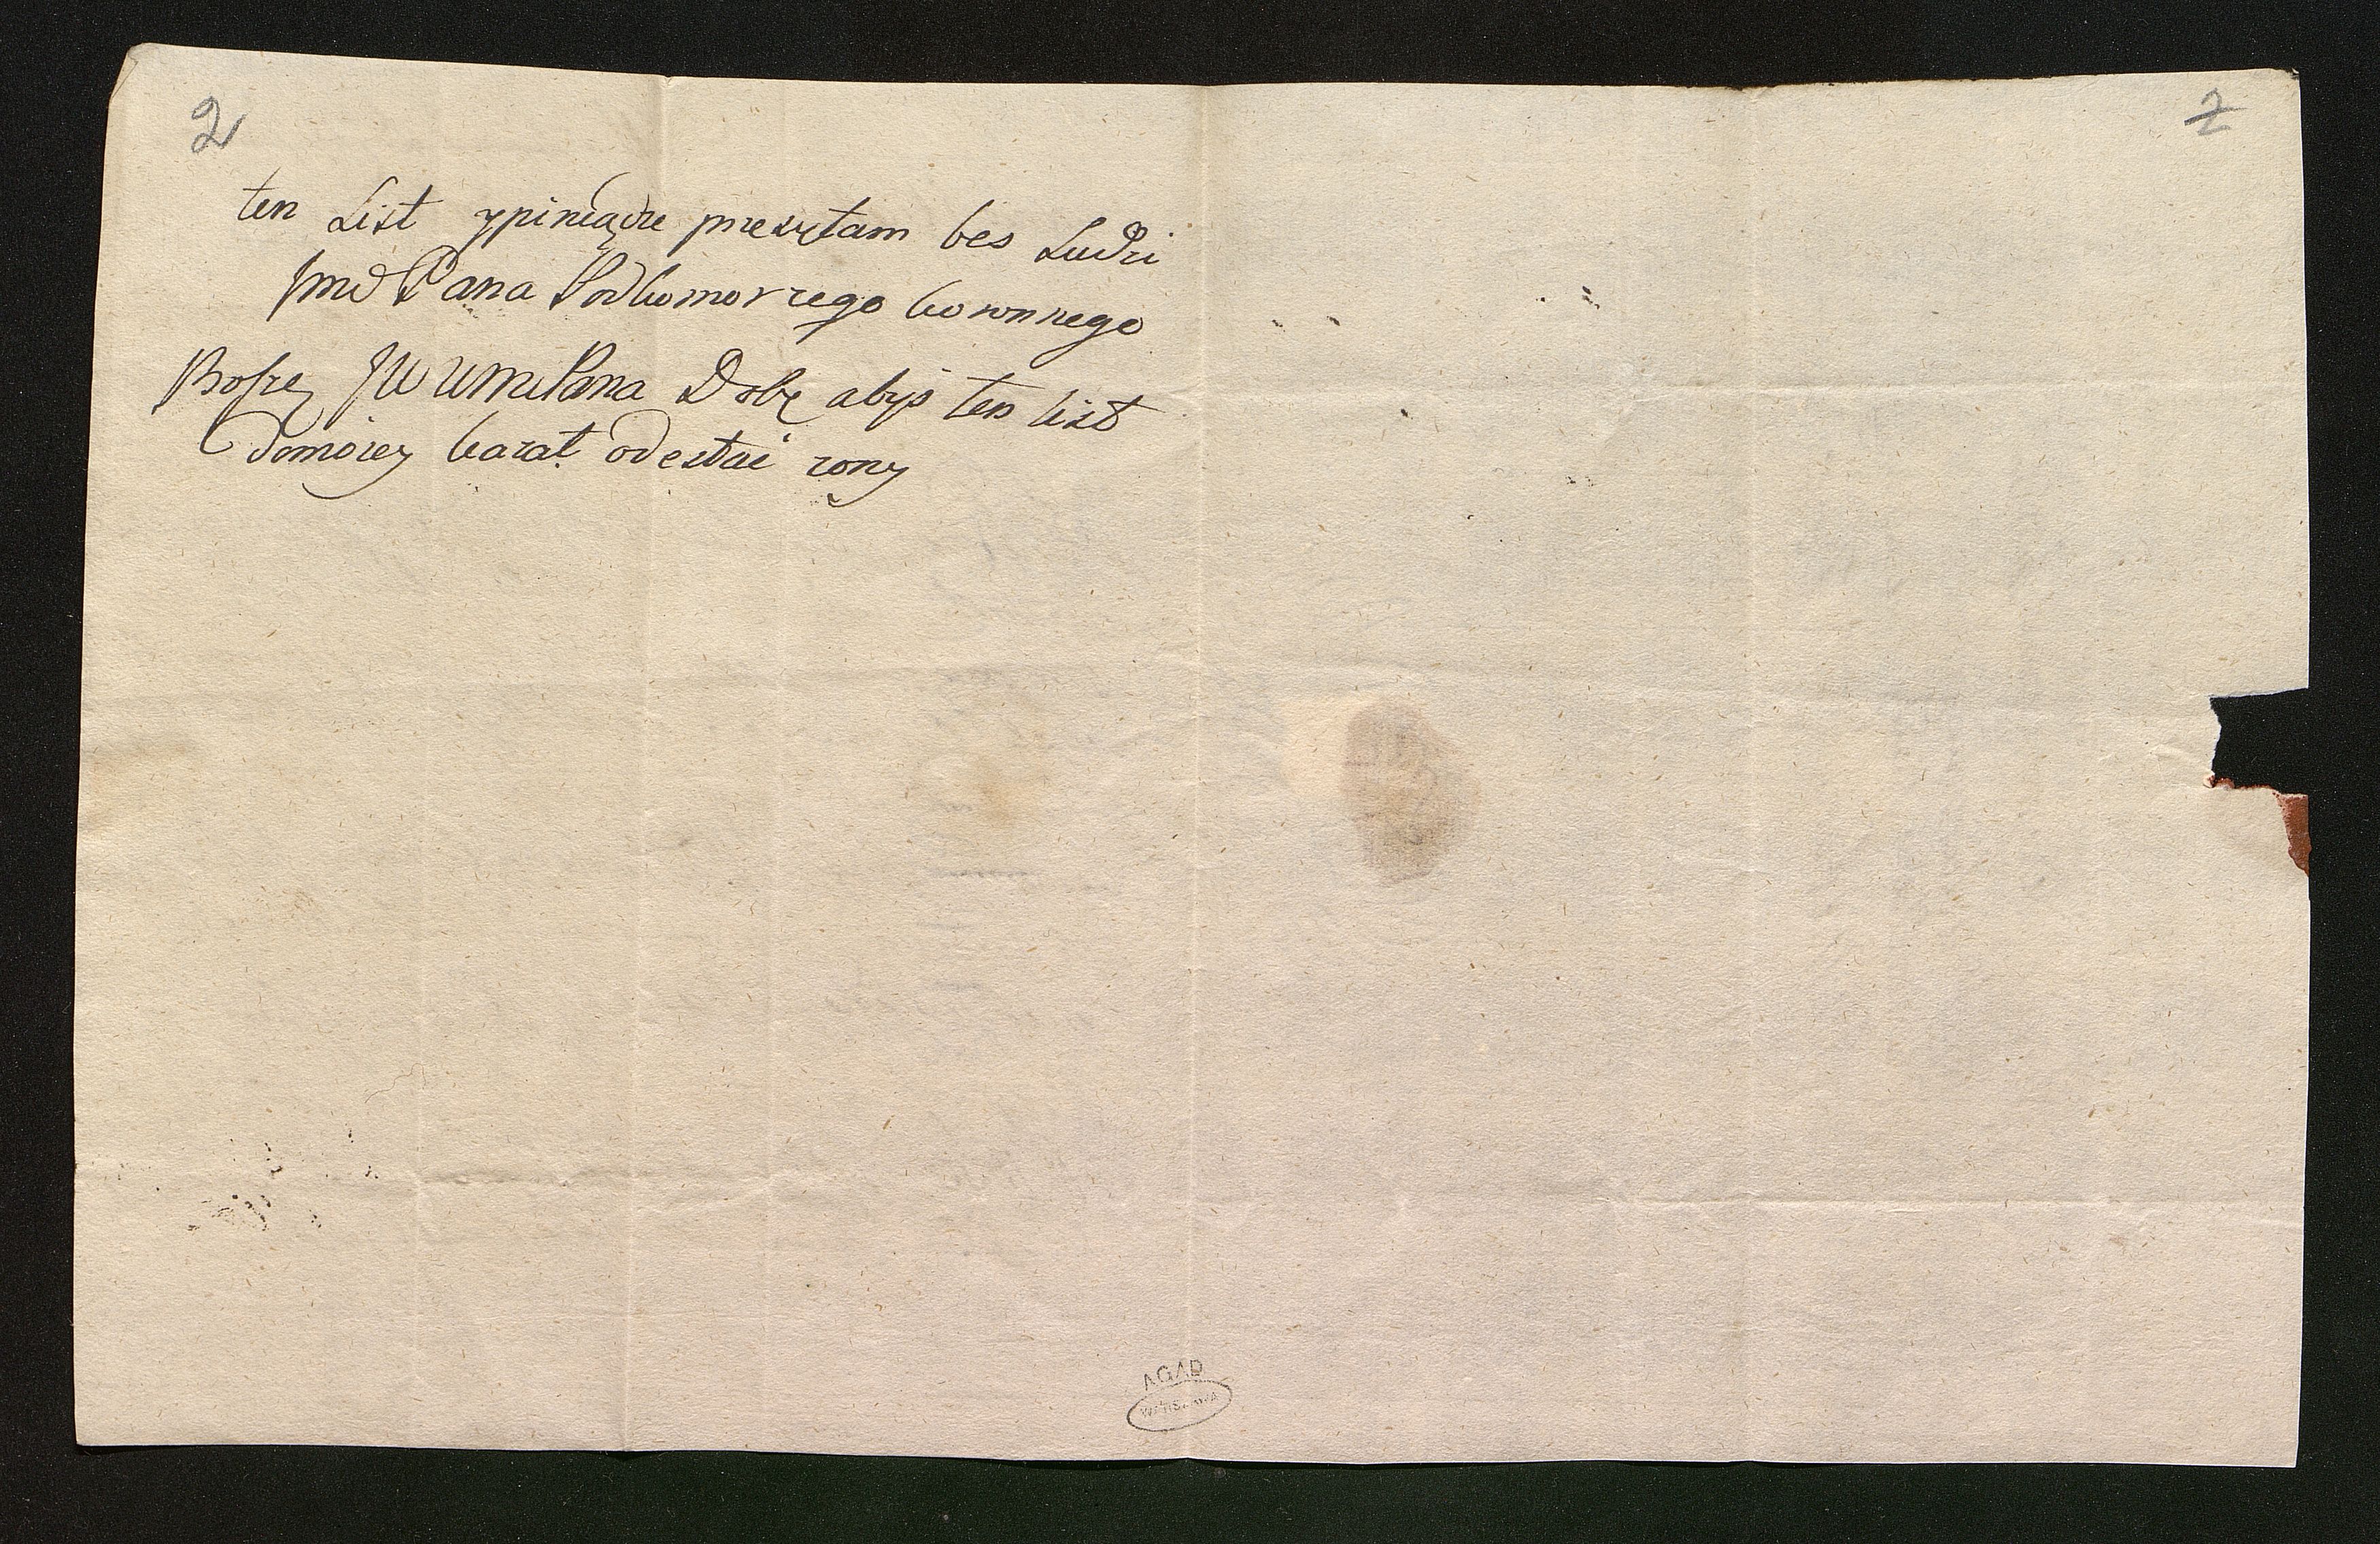 2
2
ten List ypiniądze presęłam bes Ludzi
Jmć Pana Podkomorzego koronnego
Proszę JW WmPana Dobę abyś ten list
Domoiey kazał odesłać zony
AGAD
WARSZAWA